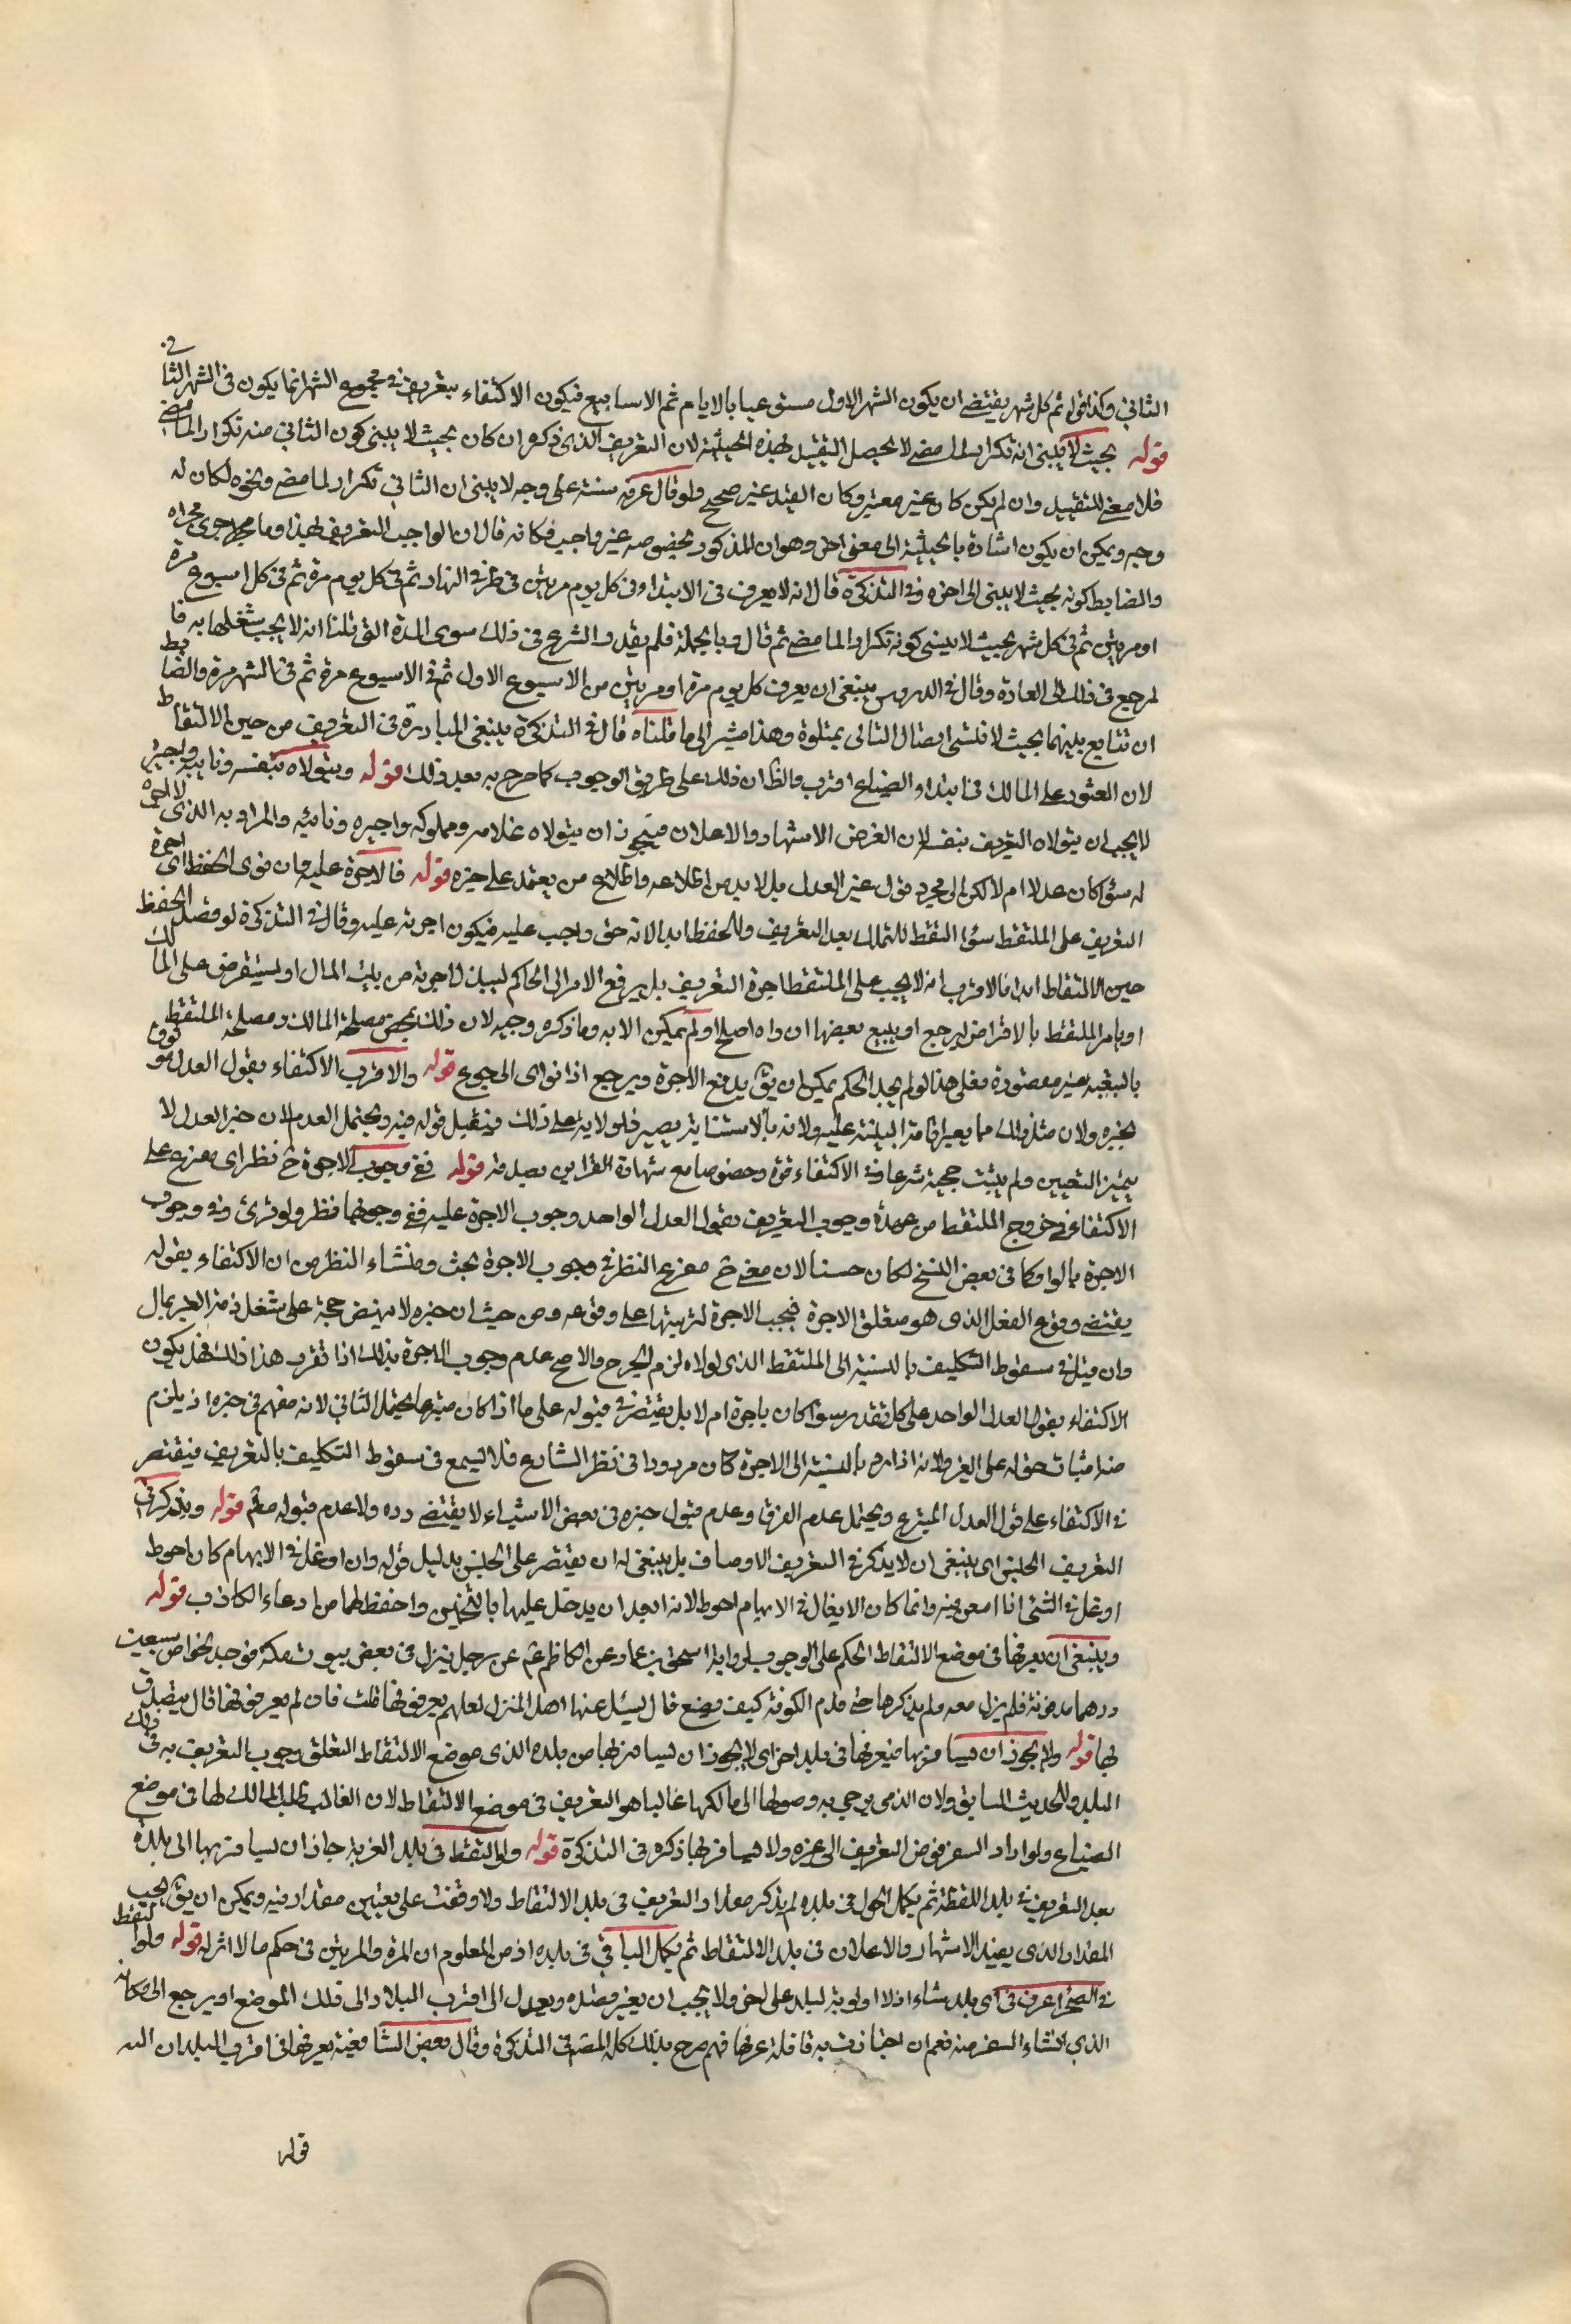 الثاني وكذا قوله ثم كل شهر يقتضي ان يكون الشهر الاول مستوعبا بالايام ثم الاسابيع فيكون الاكتفاء بتعريف في مجموع الشهر انما يكون في الشهر الثاني
قوله بحيث لا ينسى انه تكرار لما مضى لا يحصل التقييد بهذه الحيثية لان التعريف الذي ذكره ان كان بحيث لا ينسى كون الثاني منه تكرار الما مضى
فلا معنى للتقييد وان لم يكن كان غير معتبر وكان القيد غير صحيح ولو قال عرفه سنة على وجه لا ينسى ان الثاني تكرار لما مضى ونحوه لكان له
وجه ويمكن ان يكون اشارة بالحيثية الى معنى اخر وهو ان المذكور بخصوصه غير واجب فكانه قال ان الواجب التعريف بهذا وما جرى مجراه
والضابط كونه بحيث لا ينسى الى اخره وفي التذكرة قال انه لا يعرف في الابتداء في كل يوم مرتين في طرفي النهار ثم في كل يوم مرة ثم في كل اسبوع مرة
او مرتين ثم في كل شهر بحيث لا ينسى كونه تكرارا لما مضى ثم قال وبالجملة فلم يقدر الشرع في ذلك سوى المدة التي قلنا انه لا يجب شغلها به فا
لمرجع في ذلك الى العادة وقال في الدروس ينبغي ان يعرف كل يوم مرة او مرتين من الاسبوع الاول ثم في الاسبوع مرة ثم في الشهر مرة والضابط
ان تتابع بينهما بحيث لا ينسى اتصال التالي بمتلوه وهذا مشير الى ما قلناه قال في التذكرة ينبغي المبادرة في التعريف من حين الالتقاط
لان العثور على المالك في ابتداء الضياع اقرب والظ ان ذلك على طريق الوجوب كما صرح به بعد ذلك قوله ويتولاه بنفسه ونايبه واجيره
لا يجب ان يتولاه التعريف بنفسه لان الغرض الاشهاد والاعلان فيجوز ان يتولاه غلامه ومملوكه واجيره ونائبه والمراد به الذي لا اجرة
له سواء كان عدلا ام لا لكن لا الى مجرد قول غير العدل بل لا بد من اطلاعه واطلاع من يعتمد على خبره قوله فالاجرة عليه وان نوى الحفظ اي اجرة
التعريف على الملتقط سواء التقط للتملك بعد التعريف وللحفظ ابدا لانه حق واجب عليه فيكون اجرته عليه وقال في التذكرة لو قصد الحفظ
حين الالتقاط ابدا فالاقرب انه لا يجب على الملتقط اجرة التعريف بل يرفع الامر الى الحاكم ليبذل اجرته من بيت المال او يستقرض على المالك
او يامر الملتقط بالاقتراض ليرجع او يبيع بعضها ان راه اصلح او لم يمكن الا به وما ذكره وجيه لان ذلك بمحض مصلحة المالك ومصلحة الملتقط
بالتبعية غير مقصودة فعلى هذا لو لم يجد الحكم يمكن ان يق يدفع الاجرة ويرجع اذا نوى الرجوع قوله والاقرب الاكتفاء بقول العدل لوثوق
بخبره ولان مثل ذلك مما يعسر اقامة البينة عليه ولانه بالاستنابة يصير ذا ولاية على ذلك فيقبل قوله فيه ويحتمل العدم لان خبر العدل لا
يثمر اليقين ولم يثبت حجيته شرعا وفي الاكتفاء قوة وخصوصا مع شهادة القراين بصدقه قوله ففي وجوب الاجرة ح نظر اي تفريع على
الاكتفاء في خروج الملتقط من عهدة وجوب التعريف بقول العدل الواحد وجوب الاجرة عليه ففي وجوبها نظر ولو قرئ وفي وجوب
الاجرة بالواو كما في بعض النسخ لكان حسنا لان معنى ح مفرع النظر في وجوب الاجرة بحث ومنشاء النظر من ان الاكتفاء بقوله
يقتضي وقوع الفعل الذي هو متعلق الاجرة فيجب الاجرة لترتبها على وقوعه ومن حيث ان خبره لا ينهض حجة على شغل ذمة الغير بمال
وان قبل في سقوط التكليف بالنسبة الى الملتقط الذي لولاه لزم الحرج والاصح عدم وجوب الاجرة بذلك اذا تقرر هذا ذلك فهل يكون
الاكتفاء بقول العدل الواحد على كل تقدير سواء كان باجرة ام لا بل يقتصر في قبوله على ما اذا كان متبرعا يحتمل الثاني لانه متهم في خبره اذ يلزم
منه اثبات حق له على الغير ولانه اذا رد بالنسبة الى الاجرة كان مردودا في نظر الشارع فلا يسمع في سقوط التكليف بالتعريف فيقتصر
في الاكتفاء على قول العدل المتبرع ويحتمل عدم الفرق وعدم قبول خبره في بعض الاشياء لا يقتضي رده ولا عدم قبوله مطم قوله ويذكر في
التعريف الجنس اي ينبغي ان لا يذكر في التعريف الاوصاف بل ينبغي له ان يقتصر على الجنس بدليل قوله وان اوغل في الابهام كان احوط
اوغل في الشئ اذا امعن فيه وانما كان الايغال في الابهام احوط لانه ابعد ان يدخل عليها بالتخمين واحفظ لها من ادعاء الكاذب قوله
وينبغي ان يعرفها في موضع الالتقاط الحكم على الوجوب لرواية اسحق بن عمار عن الكاظم عم عن رجل ينزل في بعض بيوت مكة فوجد نحوا من سبعين
درهما مدفونة فلم يزل معه ولم يذكرها حتى قدم الكوفة كيف يصنع قال يسئل عنها اهل المنزل لعلهم يعرفونها قلت فان لم يعرفوها قال يتصدق
بها قوله ولا يجوز ان يسافر بها فيعرفها في بلد اخر اي لا يجوز ان يسافر بها من بلده الذي موضع الالتقاط لتعلق وجوب التعريف به في ذلك
البلد وللحديث السابق ولان الذي يرجى به وصولها الى مالكها غالبا هو التعريف في موضع الالتقاط لان الغالب طلب المالك لها في موضع
الضياع ولو اراد السفر فوض التعريف الى غيره ولا يسافر بها ذكره في التذكرة قوله ولو التقط في بلد الغربة جاز ان يسافر بها الى بلده
بعد التعريف في بلد اللقطة ثم يكمل الحول في بلده لم يذكر مقدار التعريف في بلد الالتقاط ولا وقفت على تعيين مقدار فيه ويمكن ان يق يجب
المقدار الذي يفيد الاشهار والاعلان في بلد الالتقاط ثم يكمل الباقي في بلده اذ من المعلوم ان المرة والمرتين في حكم ما لا اثر له قوله ولو التقط
في الصحراء عرف في اي بلد شاء اذ لا اولوية لبلد على اخر ولا يجب ان يغير قصده ويعدل الى اقرب البلاد الى تلك الموضع او يرجع الى مكانه
الذي انشاء السفر منه نعم ان اجتازت به قافلة عرفها فيهم صرح بذلك كله المصر في التذكرة وقال بعض الشافعية يعرفها في اقرب البلدان اليه
قوله